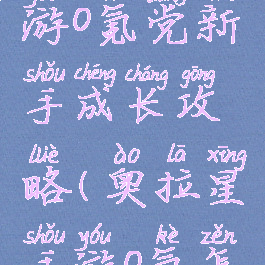 游0氪党新
shǒu chéng cháng gōng
手成长攻
lüè ào lā xīng
略(奥拉星
shǒu yóu kè zěn
手游0氪怎